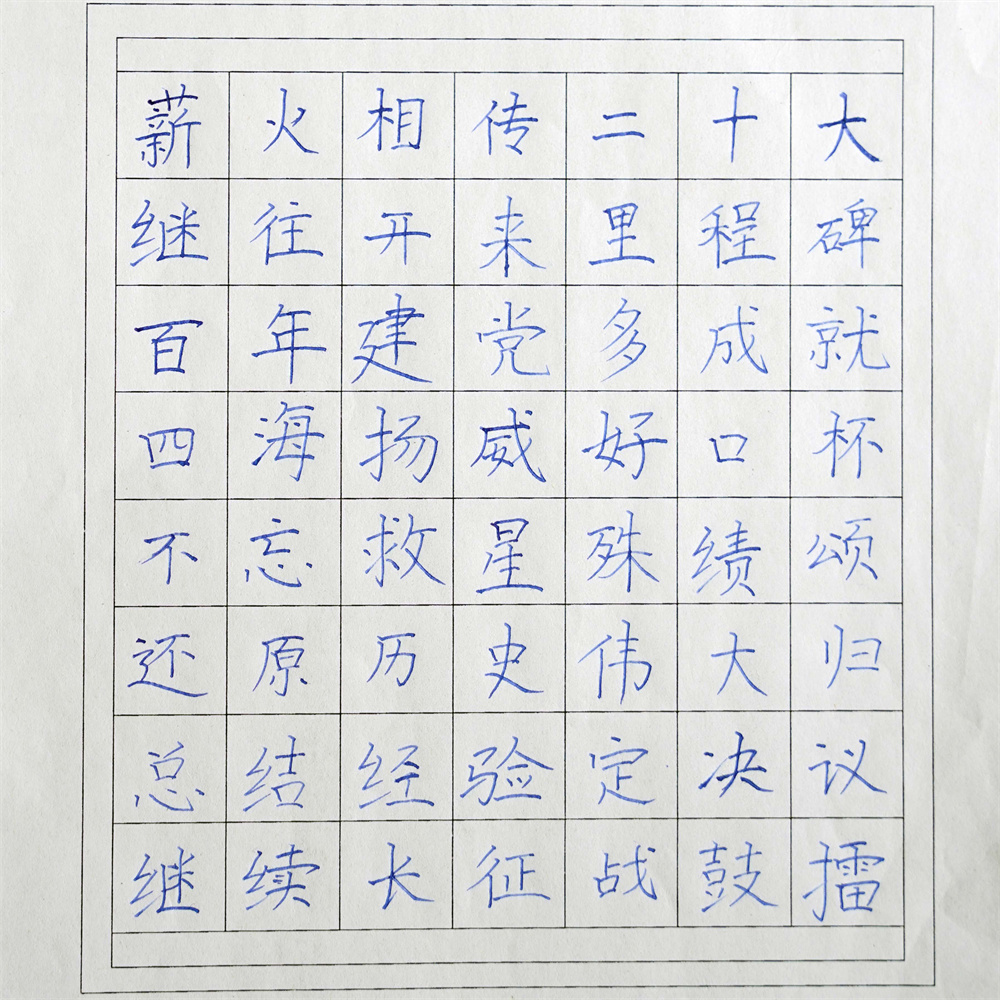 薪火相传二十大
继往开来里程碑
百年建党多成就
四海扬威好口杯
不忘救星殊绩颂
还原历史伟大归
总结经验定决议
继续长征战鼓擂